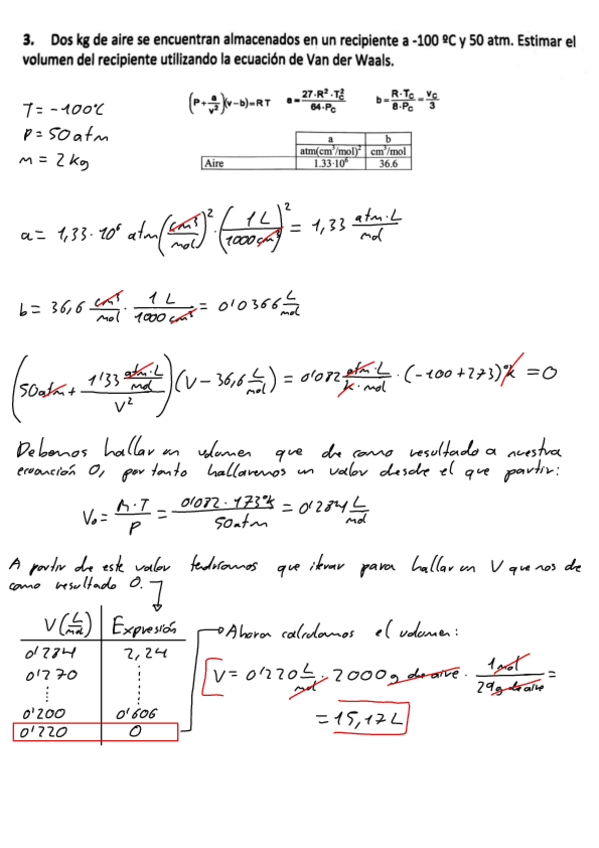 3. Dos kg de aire se encuentran almacenados en un recipiente a -100 ºC y 50 atm. Estimar el
volumen del recipiente utilizando la ecuación de Van der Waals.
T = -100ºC
P = 50 atm
m = 2 kg
(P+a/v²)(v-b)=RT a=27·R²·T_C²/64·P_C b=R·T_C/8·P_C=v_C/3
a b
atm(cm³/mol)² cm³/mol
Aire 1.33·10⁶ 36.6
a = 1,33·10⁶ atm(cm³/mol)²·(1L/1000cm³)² = 1,33 atm·L/mol
b = 36,6 cm³/mol · 1L/1000 cm³ = 0'0366 L/mol
(50atm + 1'33 atm·L/mol / V²)(V - 36,6 L/mol) = 0'082 atm·L/k·mol · (-100+273)ºk = 0
Debemos hallar un volumen que de como resultado a nuestra
ecuación 0, por tanto hallaremos un valor desde el que partir:
V₀ = R·T/P = 0'082·173ºk/50atm = 0'284 L/mol
A partir de este valor tendríamos que iterar para hallar un V que nos de
como resultado 0.
V(L/mol) Expresión
0'284 2,24
0'270
0'200 0'606
0'220 0
Ahora calculamos el volumen:
V = 0'220 L/mol · 2000 g de aire · 1 mol/29 g de aire =
= 15,17 L